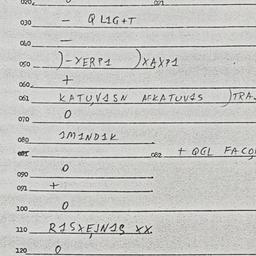 020. 021
030 - Q L1G+T
040 —
050 )-XERP1 )XAXP1
060 +
061 KATUV1SN AFKATUV1S )TRA
070 0
080 JM1ND1K
081 082 + QGL FACO
090 0
091 +
100 0
110 R1SXEJN1S XX.
120 0